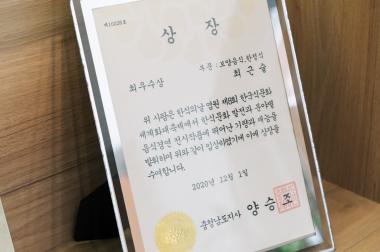 제10228호
상 장
부문 : 보양음식.한정식
최우수상
최근술
위 사람은 한식의날 명원 제8회 한국식문화
세계화대축제에서 한식문화 발전과 분야별
음식경연 전시작품에 뛰어난 기량과 재능을
발휘하여 위와 같이 입상하였기에 이에 상장을
수여합니다.
2020년 12월 1일
충청남도지사 양승조